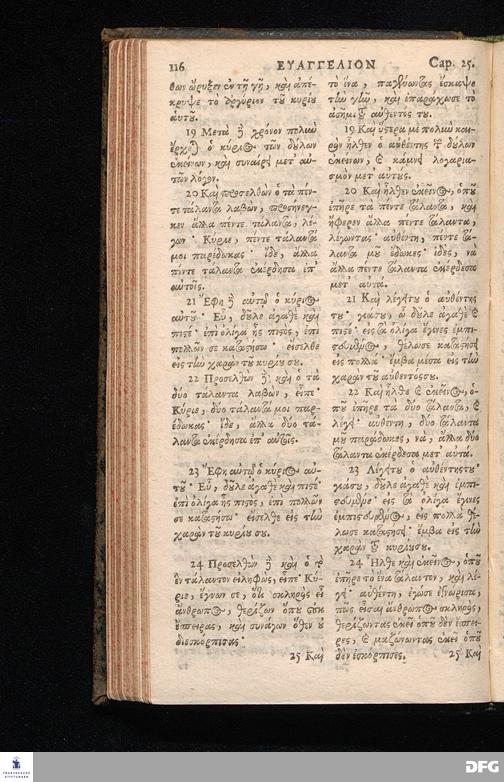 116 ΕΥΑΓΓΕΛΙΟΝ Cap. 25.
θων ὤρυξεν ἐν τῇ γῇ, καὶ ἀπέ-
κρυψε τὸ ἀργύριον τοῦ κυρίου
αὐτοῦ.
19 Μετὰ δὲ χρόνον πολὺν
ἔρχεται ὁ κύριος τῶν δούλων
ἐκείνων, καὶ συναίρει μετ' αὐ-
τῶν λόγον.
20 Καὶ προσελθὼν ὁ τὰ πέν-
τε τάλαντα λαβὼν, προσήνεγ-
κεν ἄλλα πέντε τάλαντα, λέ-
γων· Κύριε, πέντε τάλαντά
μοι παρέδωκας· ἴδε, ἄλλα
πέντε τάλαντα ἐκέρδησα ἐπ'
αὐτοῖς.
21 Ἔφη δὲ αὐτῷ ὁ κύριος
αὐτοῦ· Εὖ, δοῦλε ἀγαθὲ καὶ
πιστέ· ἐπὶ ὀλίγα ἦς πιστὸς, ἐπὶ
πολλῶν σε καταστήσω· εἴσελθε
εἰς τὴν χαρὰν τοῦ κυρίου σου.
22 Προσελθὼν δὲ καὶ ὁ τὰ
δύο τάλαντα λαβὼν, εἶπε·
Κύριε, δύο τάλαντά μοι παρ-
έδωκας· ἴδε, ἄλλα δύο τά-
λαντα ἐκέρδησα ἐπ' αὐτοῖς.
23 Ἔφη αὐτῷ ὁ κύριος αὐ-
τοῦ· Εὖ, δοῦλε ἀγαθὲ καὶ πιστὲ·
ἐπὶ ὀλίγα ἦς πιστὸς, ἐπὶ πολλῶν
σε καταστήσω· εἴσελθε εἰς τὴν
χαρὰν τοῦ κυρίου σου.
24 Προσελθὼν δὲ καὶ ὁ τὸ
ἓν τάλαντον εἰληφὼς, εἶπε· Κύ-
ριε, ἔγνων σε, ὅτι σκληρὸς εἶ
ἄνθρωπος, θερίζων ὅπου οὐκ
ἔσπειρας, καὶ συνάγων ὅθεν οὐ
διεσκόρπισας·
25 Καὶ
τὸ ἕνα, ἔσκαψε
τὴν γῆν, καὶ ἐπαράχωσε τὸ
ἀσήμι τοῦ αὐθέντος του.
19 Καὶ ὕστερα μὲ πολὺν και-
ρὸν ἦλθεν ὁ αὐθέντης τῶν δούλων
ἐκείνων, καὶ κάμνει λογαρια-
σμὸν μετ' αὐτούς.
20 Καὶ ἦλθεν ἐκεῖνος, ὁποῦ
ἐπῆρε τὰ πέντε τάλαντα, καὶ
ἤφερεν ἄλλα πέντε τάλαντα,
λέγωντας· αὐθέντη, πέντε τά-
λαντά μοῦ ἔδωκες· ἰδὲς, νὰ
ἄλλα πέντε τάλαντα ἐκέρδεσα
μετ' αὐτά.
21 Καὶ λέγει του ὁ αὐθέντης
του· γιάσου, ὦ δοῦλε ἀγαθὲ καὶ
πιστὲ· εἰς τὰ ὀλίγα ἔγινες ἐμπι-
στευμένος, θέλω σε καταστήσει
εἰς πολλά· ἔμβα μέσα εἰς τὴν
χαρὰν τοῦ αὐθεντός σου.
22 Καὶ ἦλθε καὶ ἐκεῖνος, ὁ-
ποῦ ἐπῆρε τὰ δύο τάλαντα, καὶ
λέγει· αὐθέντη, δύο τάλαντα
μοῦ παράδωκες, νὰ, ἄλλα δύο
τάλαντα ἐκέρδεσα μετ' αὐτά.
23 Λέγει του ὁ αὐθέντης του·
γιάσου, δοῦλε ἀγαθὲ καὶ ἐμπι-
στευμένε· εἰς τὰ ὀλίγα ἔγινες
ἐμπιστευμένος, εἰς πολλὰ θέ-
λω σε καταστήσει· ἔμβα εἰς τὴν
χαρὰν τοῦ κυρίου σου.
24 Ἦλθε καὶ ἐκεῖνος, ὁποῦ
ἐπῆρε τὸ ἕνα τάλαντον, καὶ λέ-
γει· αὐθέντη, ἐγώ σε ἐγνώρισα,
πῶς εἶσαι ἄνθρωπος σκληρὸς,
θερίζωντας ἐκεῖ ὁποῦ δὲν ἔσπει-
ρες, καὶ μαζώνωντας ἐκεῖ ὁποῦ
δὲν ἐσκόρπισες.
25 Καὶ
FRANCKESCHE
STIFTUNGEN
DFG